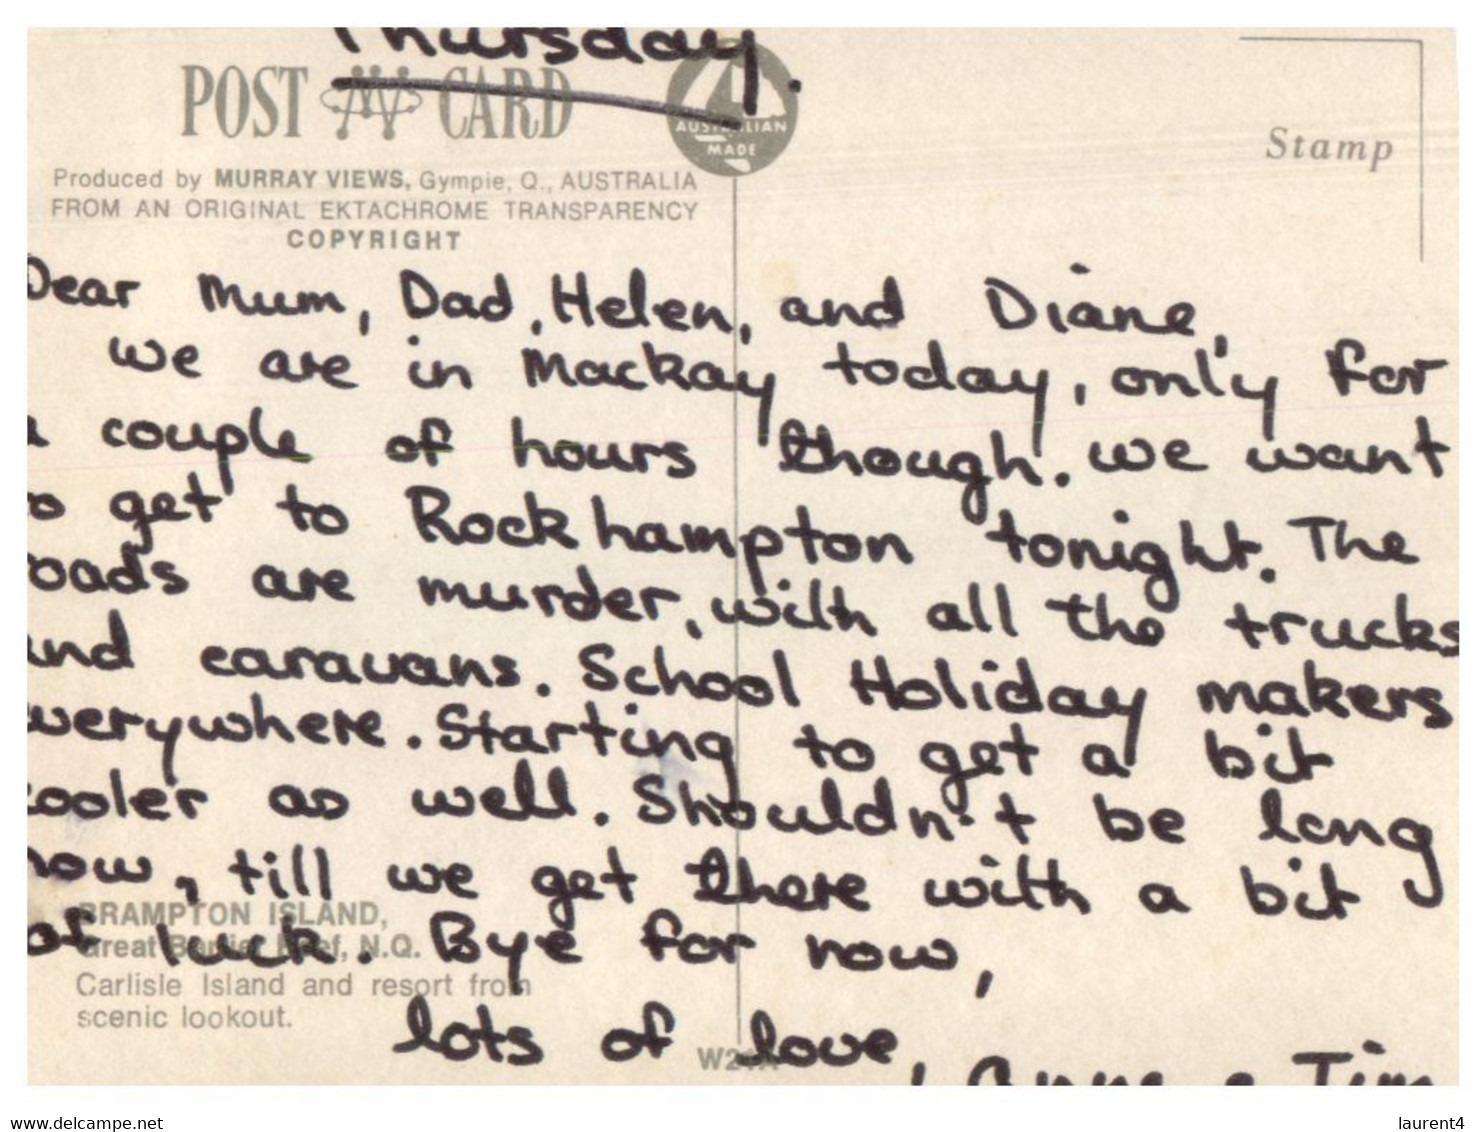 Thursday.
POST CARD
AUSTRALIAN
MADE
Stamp
Produced by MURRAY VIEWS, Gympie, Q., AUSTRALIA
FROM AN ORIGINAL EKTACHROME TRANSPARENCY
COPYRIGHT
Dear Mum, Dad, Helen, and Diane,
we are in Mackay today, only for
a couple of hours though. we want
to get to Rockhampton tonight. The
roads are murder, with all the trucks
and caravans. School Holiday makers
everywhere. Starting to get a bit
cooler as well. Shouldn't be long
now, till we get there with a bit
of luck. Bye for now,
lots of love,
Anne & Tim
BRAMPTON ISLAND,
Great Barrier Reef, N.Q.
Carlisle Island and resort from
scenic lookout.
delcampe.net
laurent4